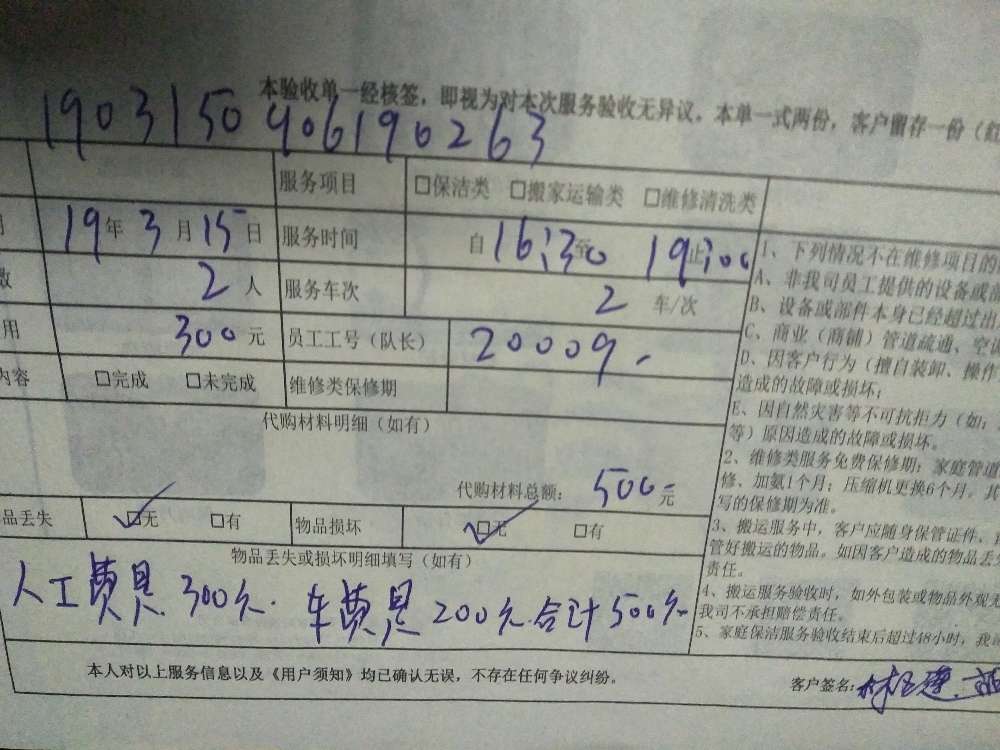 本验收单一经核签，即视为对本次服务验收无异议，本单一式两份，客户留存一份（红
190315090619 0263
服务项目 □保洁类 □搬家运输类 □维修清洗类
19年3月15日 服务时间 自16:30至19:00止
2人 服务车次 2车/次
用 300元 员工工号（队长） 20009
内容 □完成 □未完成 维修类保修期
代购材料明细（如有）
代购材料总额： 500元
品丢失 ☑无 □有 物品损坏 ☑无 □有
物品丢失或损坏明细填写（如有）
人工费是300元. 车费是200元.合计500元
本人对以上服务信息以及《用户须知》均已确认无误，不存在任何争议纠纷。
客户签名:
1、下列情况不在维修项目的
A、非我司员工提供的设备或
B、设备或部件本身已经超过出
C、商业（商铺）管道疏通、空
D、因客户行为（擅自装卸、操作
造成的故障或损坏；
E、因自然灾害等不可抗拒力（如：
等）原因造成的故障或损坏。
2、维修类服务免费保修期：家庭管道
修、加氨1个月；压缩机更换6个月。其
写的保修期为准。
3、搬运服务中，客户应随身保管证件、
管好搬运的物品。如因客户造成的物品丢
责任。
4、搬运服务验收时，如外包装或物品外观
我司不承担赔偿责任。
5、家庭保洁服务验收结束后超过48小时，我